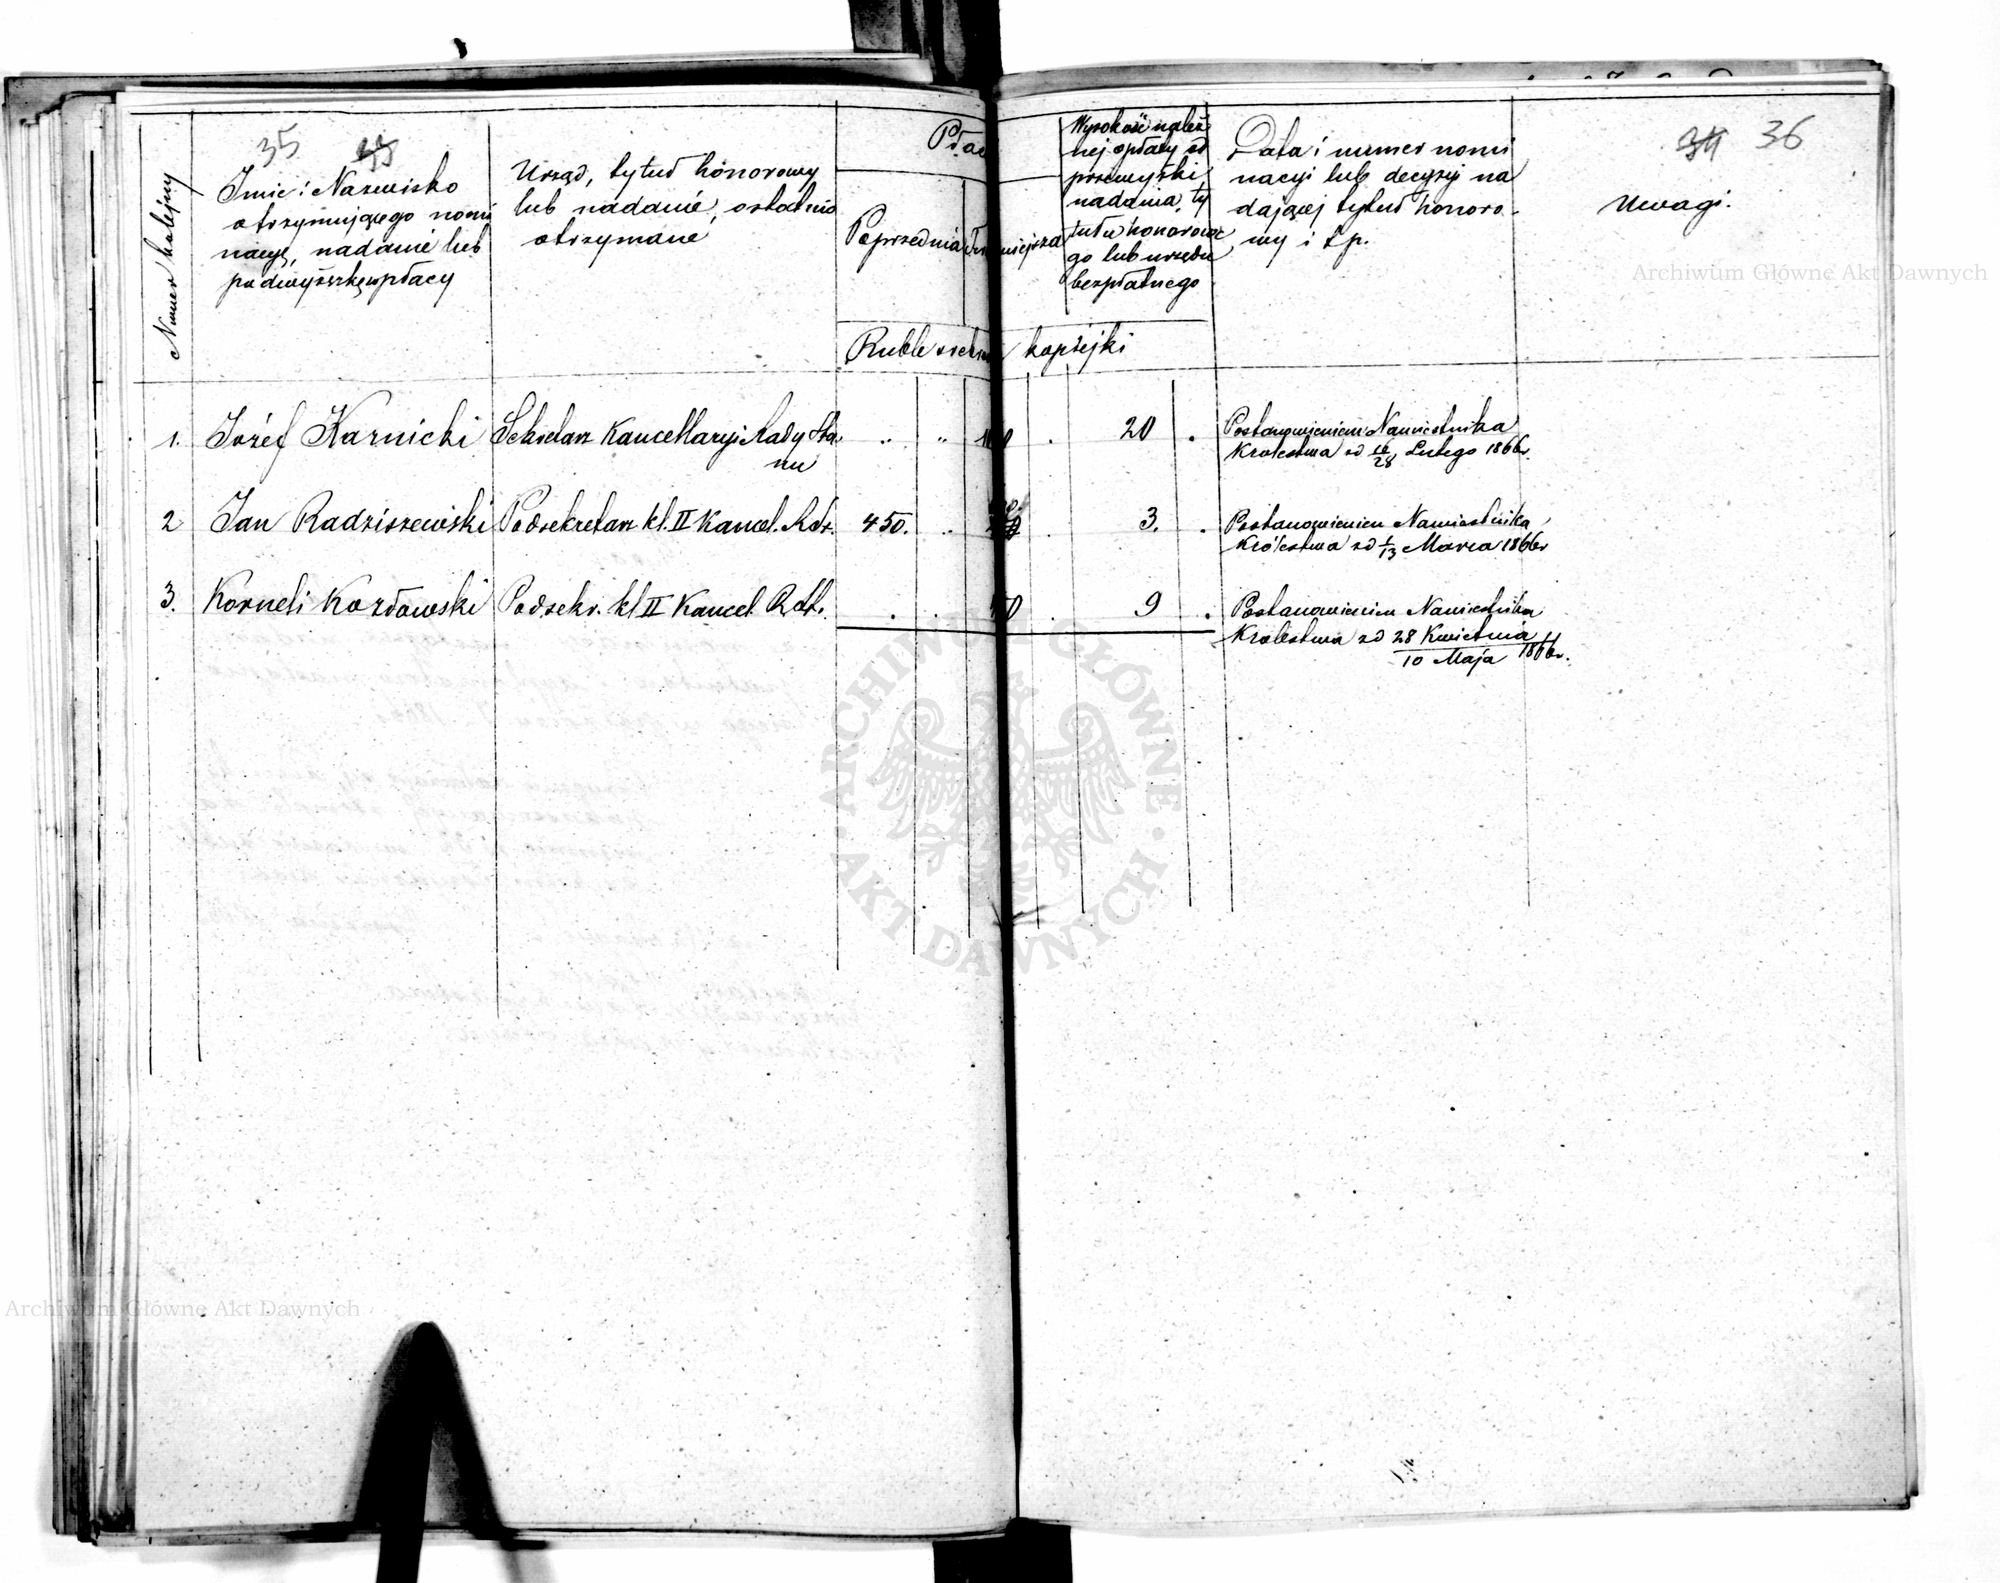 35
36
Numer kolejny
Imie i Nazwisko
otrzymującego nomi
nacyę, nadanie lub
podwyższkę płacy
Urząd, tytuł honorowy
lub nadanie, ostatnio
otrzymane
Płac
Poprzednia
Ruble srebr kopiejki
Wysokość należ
nej opłaty od
przewyżki
nadania, ty
tułu honorowe
go lub urzędu
bezpłatnego
Data i numer nomi
nacyi lub decyzyi na
dającej tytuł honoro-
wy i t.p.
Uwagi.
1. Józef Karnicki Sekretarz Kancellaryi Rady Sta 20 Postanowieniem Namiestnika
nu Królestwa zd 16/28 Lutego 1866r.
2 Jan Radziszewski Podsekretarz kl. II Kancel. R. St. 450. 3. Postanowieniem Namiestnika
Królestwa zd 1/13 Marca 1866r
3. Korneli Kozłowski Podsekr. kl II Kancel. R. St. 9 Postanowieniem Namiestnika
Królestwa zd 28 Kwietnia
10 Maja 1866r.
Archiwum Główne Akt Dawnych
ARCHIWUM GŁÓWNE
· AKT DAWNYCH ·
Archiwum Główne Akt Dawnych